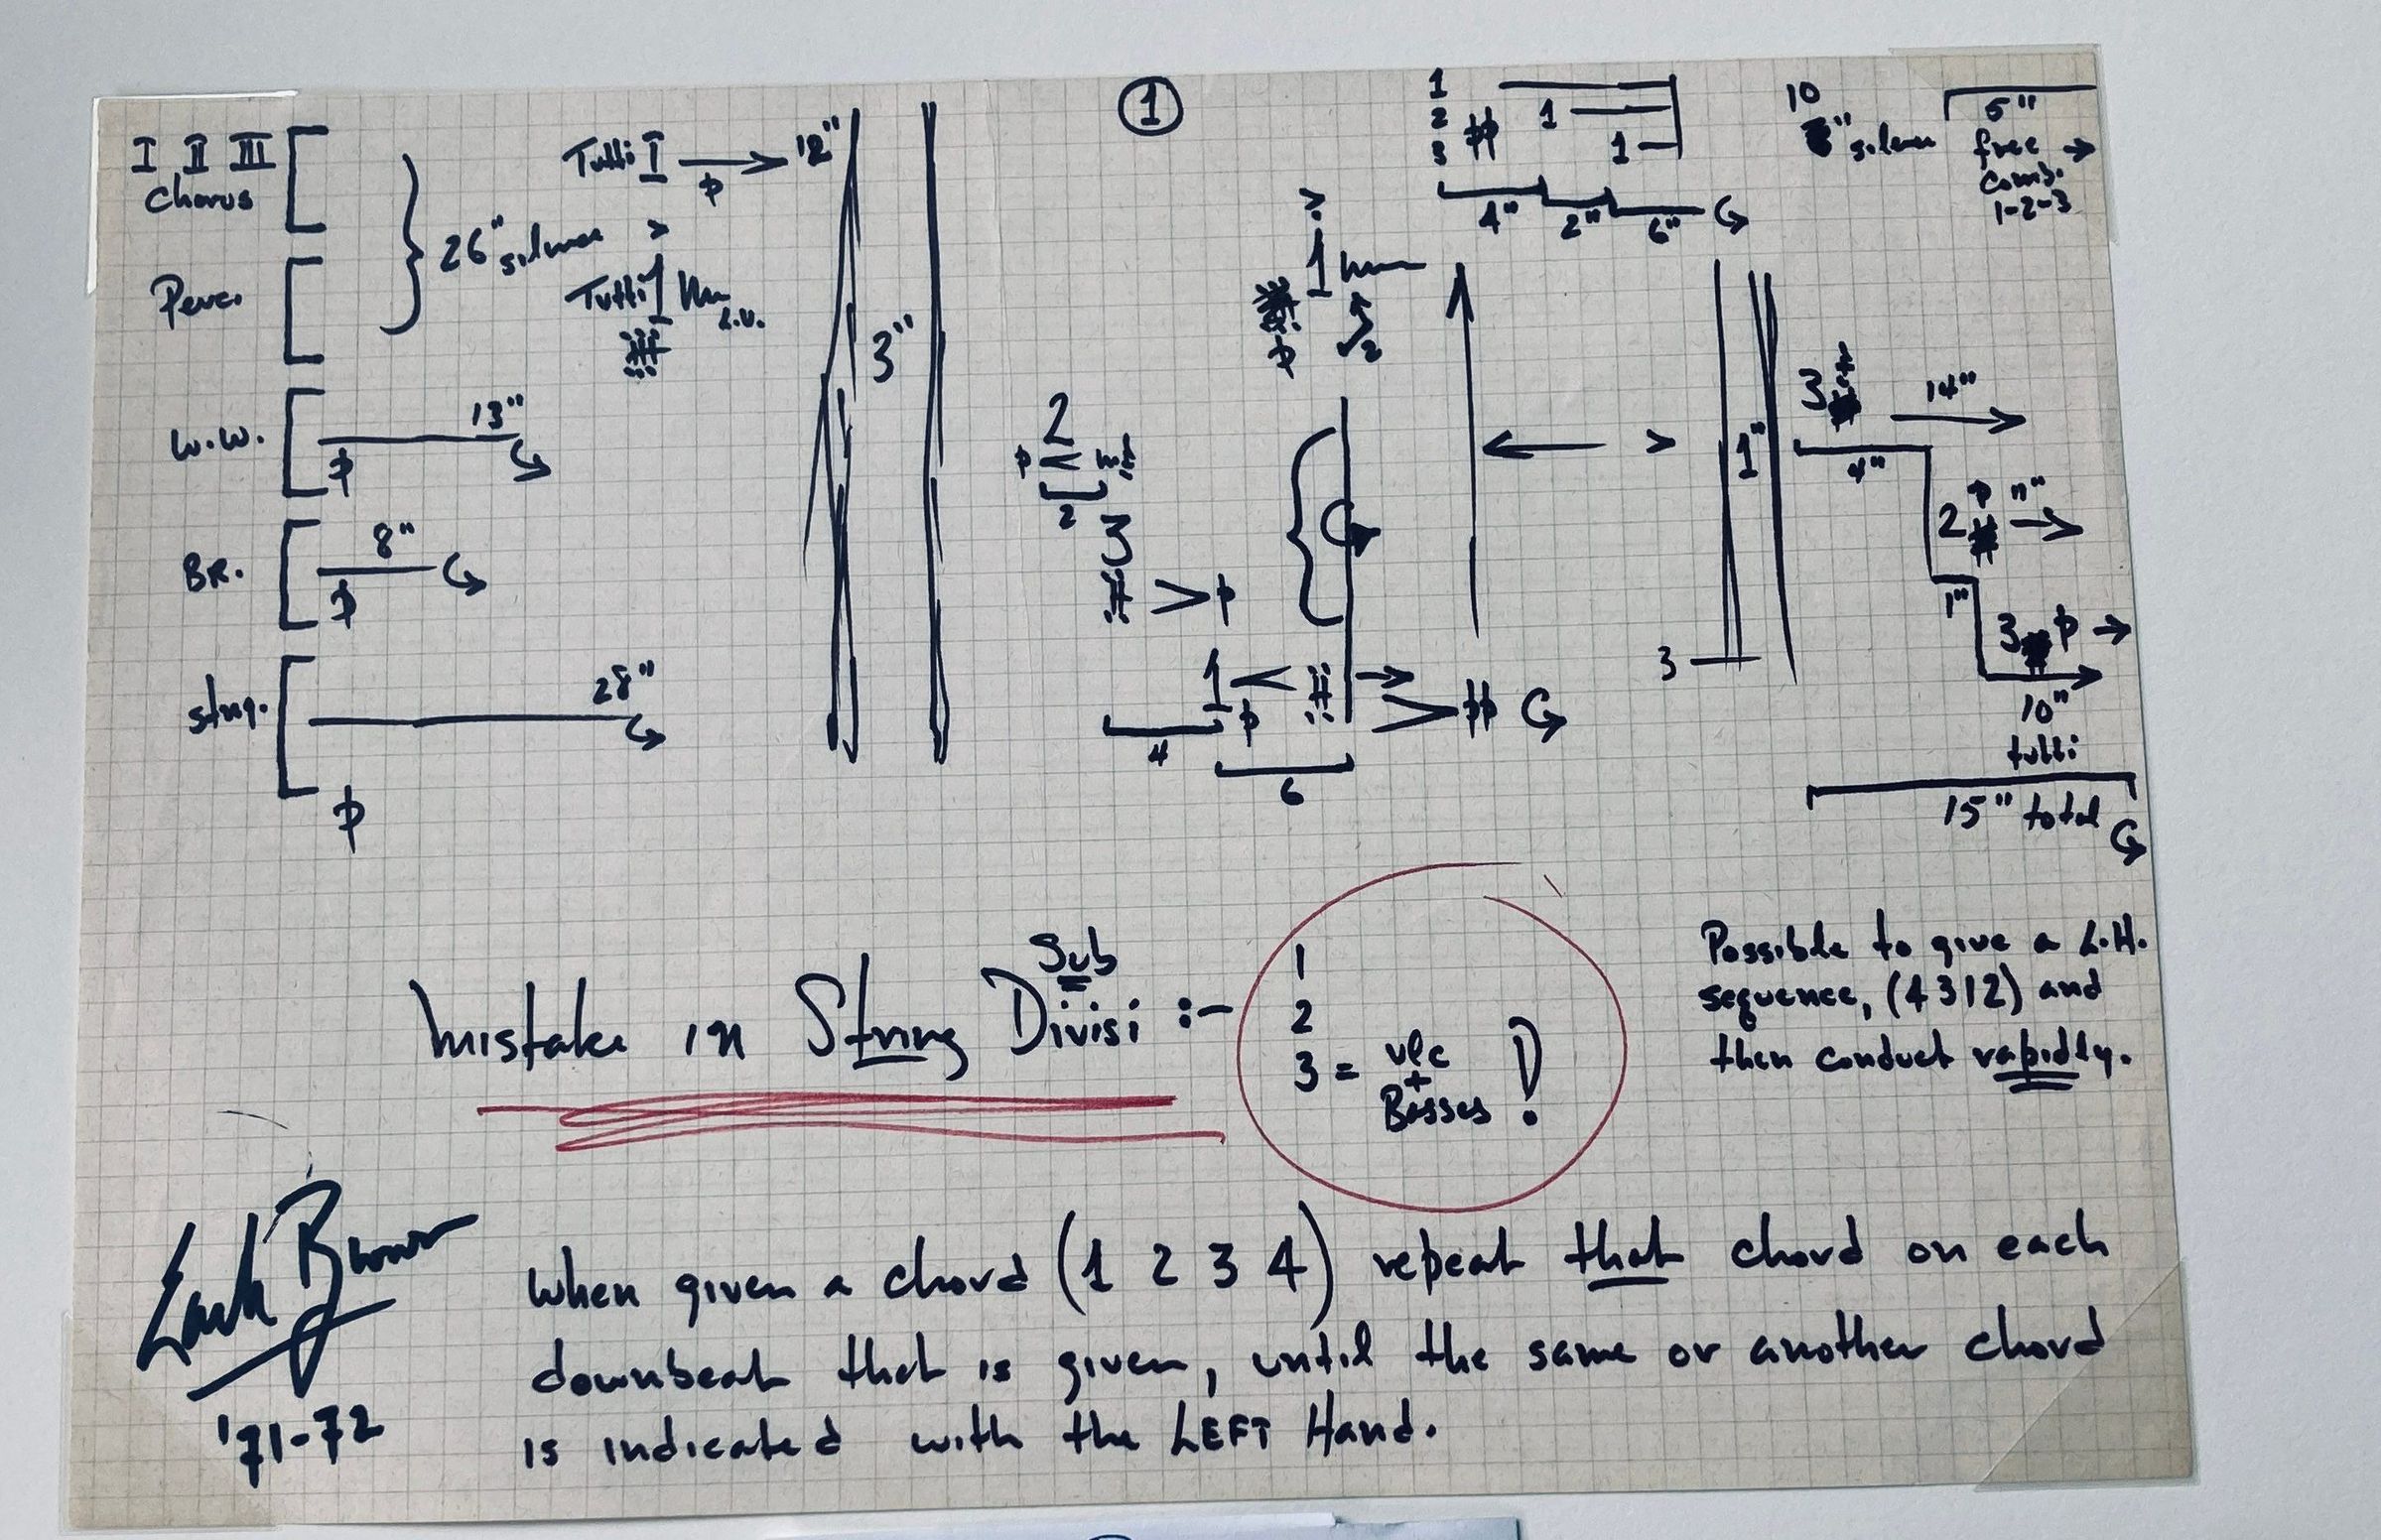 ①
I II III
Chorus
Perc.
W.W.
BR.
26"
Tutti I → 12"
p
Tutti 1
L.V.
13"
p
8"
p
28"
p
3"
2
p < mf
2
3
ff > p
1 < ff →
p
> pp
4
6
1
p
2
1
2 pp 1
3 1
4" 2" 6"
10
5"
free →
comb.
1-2-3
> 1"
3
3 14"
4"
2 p 11"
1"
3 p →
10"
tutti
15" total
Sub
Mistake in String Divisi :-
1
2
3 = vlc
+
Basses !
Possible to give a L.H.
sequence, (4312) and
then conduct rapidly.
Earle Brown
'71-72
When given a chord (1 2 3 4) repeat that chord on each
downbeat that is given, until the same or another chord
is indicated with the LEFT Hand.